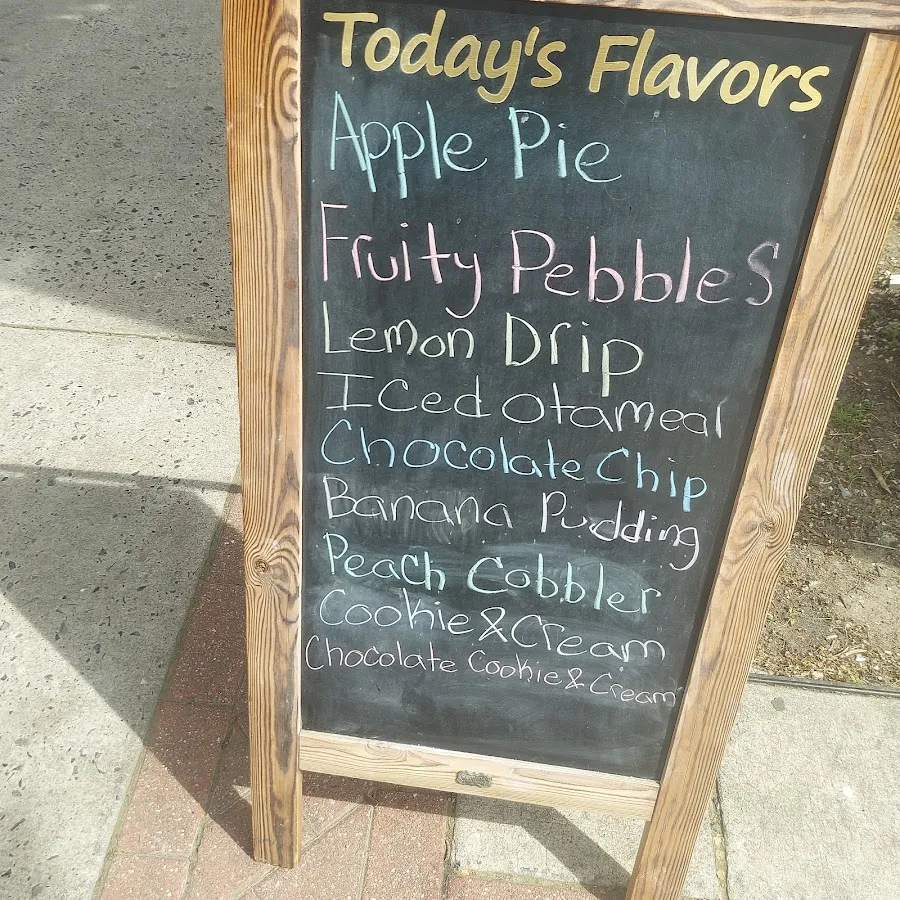 Today's Flavors
Apple Pie
Fruity Pebbles
Lemon Drip
Iced otameal
Chocolate Chip
Banana Pudding
Peach Cobbler
Cookie & Cream
Chocolate Cookie & Cream